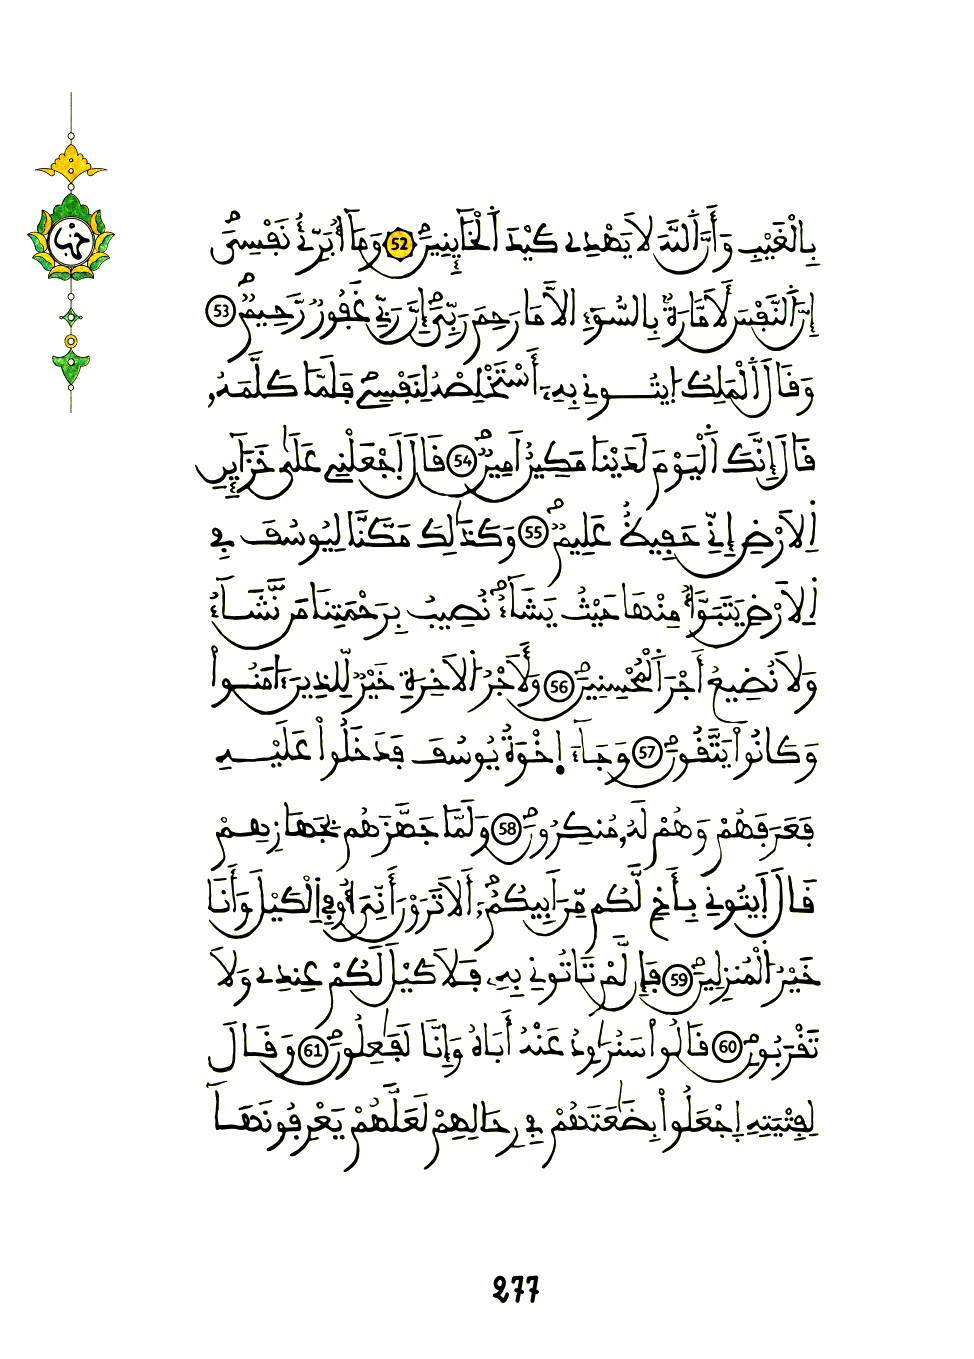 حزب
بِالْغَيْبِ وَأَنَّ اَ۬للَّهَ لَا يَهْدِے كَيْدَ اَ۬لْخَآئِنِينَ 52 وَمَآ أُبَرِّئُ نَفْسِيَ
إِنَّ اَ۬لنَّفْسَ لَأَمَّارَةُۢ بِالسُّوٓءِ اِلَّا مَا رَحِمَ رَبِّيَ إِنَّ رَبِّے غَفُورٞ رَّحِيمٞ 53
وَقَالَ اَ۬لْمَلِكُ اُ۪يتُونِے بِهِۦٓ أَسْتَخْلِصْهُ لِنَفْسِے فَلَمَّا كَلَّمَهُۥ
قَالَ إِنَّكَ اَ۬لْيَوْمَ لَدَيْنَا مَكِينٌ اَمِينٞ 54 قَالَ اَ۪جْعَلْنِے عَلَيٰ خَزَآئِنِ
اِ۬لَارْضِ إِنِّے حَفِيظٌ عَلِيمٞ 55 وَكَذَٰلِكَ مَكَّنَّا لِيُوسُفَ فِے
اِ۬لَارْضِ يَتَبَوَّأُ مِنْهَا حَيْثُ يَشَآءُ نُصِيبُ بِرَحْمَتِنَا مَن نَّشَآءُ
وَلَا نُضِيعُ أَجْرَ اَ۬لْمُحْسِنِينَ 56 وَلَأَجْرُ اُ۬لَاخِرَةِ خَيْرٞ لِّلذِينَ ءَامَنُواْ
وَكَانُواْ يَتَّقُونَ 57 وَجَآءَ اِ۪خْوَةُ يُوسُفَ فَدَخَلُواْ عَلَيْهِ
فَعَرَفَهُمْ وَهُمْ لَهُۥ مُنكِرُونَ 58 وَلَمَّا جَهَّزَهُم بِجَهَازِهِمْ
قَالَ اَ۪يتُونِے بِأَخٖ لَّكُم مِّنَ اَبِيكُمُۥٓ أَلَا تَرَوْنَ أَنِّيَ أُوفِے اِ۬لْكَيْلَ وَأَنَا
خَيْرُ اُ۬لْمُنزِلِينَ 59 فَإِن لَّمْ تَاتُونِے بِهِۦ فَلَا كَيْلَ لَكُمْ عِندِے وَلَا
تَقْرَبُونِ 60 قَالُواْ سَنُرَٰوِدُ عَنْهُ أَبَاهُ وَإِنَّا لَفَٰعِلُونَ 61 وَقَالَ
لِفِتْيَتِهِ اِ۪جْعَلُواْ بِضَٰعَتَهُمْ فِے رِحَالِهِمْ لَعَلَّهُمْ يَعْرِفُونَهَآ
277